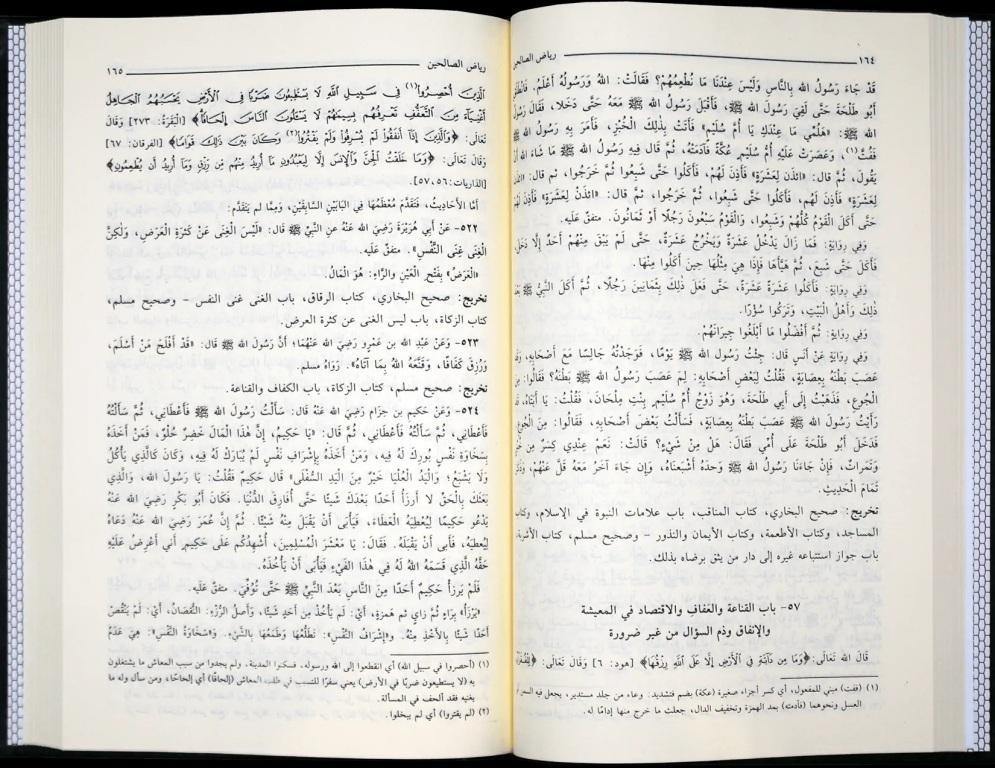 ١٦٤ رياض الصالحين
قَدْ جَاءَ رَسُولُ اللهِ بِالنَّاسِ وَلَيْسَ عِنْدَنَا مَا نُطْعِمُهُمْ؟ فَقَالَتْ: اللهُ وَرَسُولُهُ أَعْلَمُ. فَانْطَلَقَ
أَبُو طَلْحَةَ حَتَّى لَقِيَ رَسُولَ اللهِ ﷺ، فَأَقْبَلَ رَسُولُ اللهِ ﷺ مَعَهُ حَتَّى دَخَلَا، فَقَالَ رَسُولُ
اللهِ ﷺ: «هَلُمِّي مَا عِنْدَكِ يَا أُمَّ سُلَيْمٍ» فَأَتَتْ بِذَلِكَ الْخُبْزِ، فَأَمَرَ بِهِ رَسُولُ اللهِ ﷺ
فَفُتَّ(١)، وَعَصَرَتْ عَلَيْهِ أُمُّ سُلَيْمٍ عُكَّةً فَآدَمَتْهُ، ثُمَّ قَالَ فِيهِ رَسُولُ اللهِ ﷺ مَا شَاءَ اللهُ أَنْ
يَقُولَ، ثُمَّ قَالَ: «ائْذَنْ لِعَشَرَةٍ» فَأَذِنَ لَهُمْ، فَأَكَلُوا حَتَّى شَبِعُوا ثُمَّ خَرَجُوا، ثم قال: «ائْذَنْ
لِعَشَرَةٍ» فَأَذِنَ لهم، فَأَكَلُوا حَتَّى شَبِعُوا، ثُمَّ خَرَجُوا، ثمَّ قال: «ائْذَنْ لِعَشَرَةٍ» فَأَذِنَ لهُم
حَتَّى أَكَلَ الْقَوْمُ كُلُّهُمْ وَشَبِعُوا، وَالْقَوْمُ سَبْعُونَ رَجُلًا أَوْ ثَمَانُونَ. متفقٌ عليه.
وَفِي رِوَايَةٍ: فَمَا زَالَ يَدْخُلُ عَشَرَةٌ وَيَخْرُجُ عَشَرَةٌ، حَتَّى لَمْ يَبْقَ مِنْهُمْ أَحَدٌ إِلَّا دَخَلَ،
فَأَكَلَ حَتَّى شَبِعَ، ثُمَّ هَيَّأَهَا فَإِذَا هِيَ مِثْلُهَا حِينَ أَكَلُوا مِنْهَا.
وَفِي رِوَايَةٍ: فَأَكَلُوا عَشَرَةً عَشَرَةً، حَتَّى فَعَلَ ذَلِكَ بِثَمَانِينَ رَجُلًا، ثُمَّ أَكَلَ النَّبِيُّ ﷺ بَعْدَ
ذَلِكَ وَأَهْلُ الْبَيْتِ، وَتَرَكُوا سُؤْرًا.
وَفِي رِوَايَةٍ: ثُمَّ أَفْضَلُوا مَا أَبْلَغُوا جِيرَانَهُمْ.
وَفِي رِوَايَةٍ عَنْ أَنَسٍ قَالَ: جِئْتُ رَسُولَ اللهِ ﷺ يَوْمًا، فَوَجَدْتُهُ جَالِسًا مَعَ أَصْحَابِهِ، وَقَدْ
عَصَبَ بَطْنَهُ بِعِصَابَةٍ، فَقُلْتُ لِبَعْضِ أَصْحَابِهِ: لِمَ عَصَبَ رَسُولُ اللهِ ﷺ بَطْنَهُ؟ فَقَالُوا: مِنَ
الْجُوعِ، فَذَهَبْتُ إِلَى أَبِي طَلْحَةَ، وَهُوَ زَوْجُ أُمِّ سُلَيْمٍ بِنْتِ مِلْحَانَ، فَقُلْتُ: يَا أَبَتَاهُ، قَدْ
رَأَيْتُ رَسُولَ اللهِ ﷺ عَصَبَ بَطْنَهُ بِعِصَابَةٍ، فَسَأَلْتُ بَعْضَ أَصْحَابِهِ، فَقَالُوا: مِنَ الْجُوعِ.
فَدَخَلَ أَبُو طَلْحَةَ عَلَى أُمِّي فَقَالَ: هَلْ مِنْ شَيْءٍ؟ قَالَتْ: نَعَمْ عِنْدِي كِسَرٌ مِنْ خُبْزٍ
وَتَمَرَاتٌ، فَإِنْ جَاءَنَا رَسُولُ اللهِ ﷺ وَحْدَهُ أَشْبَعْنَاهُ، وَإِن جَاءَ آخَرُ مَعَهُ قَلَّ عَنْهُمْ، وَذَكَرَ
تَمَامَ الْحَدِيثِ.
تخريج: صحيح البخاري، كتاب المناقب، باب علامات النبوة في الإسلام، وكتاب
المساجد، وكتاب الأطعمة، وكتاب الأيمان والنذور – وصحيح مسلم، كتاب الأشربة،
باب جواز استتباعه غيره إلى دار من يثق برضاه بذلك.
٥٧- باب القناعة والعَفاف والاقتصاد في المعيشة
والإنفاق وذم السؤال من غير ضرورة
قَالَ اللهُ تَعَالَى: ﴿وَمَا مِن دَآبَّةٍ فِي الْأَرْضِ إِلَّا عَلَى اللَّهِ رِزْقُهَا﴾ [هود: ٦] وَقَالَ تَعَالَى: ﴿لِلْفُقَرَاءِ
(١) (ففت) مبني للمفعول، أي كسر أجزاء صغيرة (عكة) بضم فتشديد: وعاء من جلد مستدير، يجعل فيه السمن أو
العسل ونحوهما (فآدمته) بمد الهمزة وتخفيف الدال، جعلت ما خرج منها إدامًا له.
رياض الصالحين ١٦٥
الَّذِينَ أُحْصِرُوا(١) فِي سَبِيلِ اللَّهِ لَا يَسْتَطِيعُونَ ضَرْبًا فِي الْأَرْضِ يَحْسَبُهُمُ الْجَاهِلُ
أَغْنِيَاءَ مِنَ التَّعَفُّفِ تَعْرِفُهُم بِسِيمَاهُمْ لَا يَسْئَلُونَ النَّاسَ إِلْحَافًا﴾ [الْبَقَرَة: ٢٧٣] وَقَالَ
تَعَالَى: ﴿وَالَّذِينَ إِذَا أَنفَقُوا لَمْ يُسْرِفُوا وَلَمْ يَقْتُرُوا(٢) وَكَانَ بَيْنَ ذَلِكَ قَوَامًا﴾ [الفرقان: ٦٧]
وَقَالَ تَعَالَى: ﴿وَمَا خَلَقْتُ الْجِنَّ وَالْإِنسَ إِلَّا لِيَعْبُدُونِ مَا أُرِيدُ مِنْهُم مِّن رِّزْقٍ وَمَا أُرِيدُ أَن يُطْعِمُونِ﴾
[الذاريات: ٥٦، ٥٧].
أمَّا الأحاديثُ، فَتَقَدَّمَ مُعْظَمُهَا فِي البَابَيْنِ السَّابِقَيْنِ، وَمِمَّا لم يَتَقَدَّمْ:
٥٢٢- عَنْ أَبِي هُرَيْرَةَ رَضِيَ اللهُ عَنْهُ عنِ النَّبِيِّ ﷺ قَالَ: «لَيْسَ الْغِنَى عَنْ كَثْرَةِ الْعَرَضِ، وَلَكِنَّ
الْغِنَى غِنَى النَّفْسِ». متفقٌ عليه.
«الْعَرَضُ» بِفَتْحِ الْعَيْنِ وَالرَّاءِ: هُوَ الْمَالُ.
تخريج: صحيح البخاري، كتاب الرقاق، باب الغنى غنى النفس – وصحيح مسلم،
كتاب الزكاة، باب ليس الغنى عن كثرة العرض.
٥٢٣- وَعَنْ عَبْدِ اللهِ بنِ عَمْرٍو رَضِيَ الله عَنْهُمَا؛ أَنَّ رَسُولَ اللهِ ﷺ قال: «قَدْ أَفْلَحَ مَنْ أَسْلَمَ،
وَرُزِقَ كَفَافًا، وَقَنَّعَهُ اللهُ بِمَا آتَاهُ». رَوَاهُ مسلم.
تخريج: صحيح مسلم، كتاب الزكاة، باب الكفاف والقناعة.
٥٢٤- وَعَنْ حَكِيمِ بن حِزَامٍ رَضِيَ الله عَنْهُ قَالَ: سَأَلْتُ رَسُولَ اللهِ ﷺ فَأَعْطَانِي، ثُمَّ سَأَلْتُهُ
فَأَعْطَانِي، ثُمَّ سَأَلْتُهُ فَأَعْطَانِي، ثُمَّ قَالَ: «يَا حَكِيمُ، إِنَّ هَذَا الْمَالَ خَضِرٌ حُلْوٌ، فَمَنْ أَخَذَهُ
بِسَخَاوَةِ نَفْسٍ بُورِكَ لَهُ فِيهِ، وَمَنْ أَخَذَهُ بِإِشْرَافِ نَفْسٍ لَمْ يُبَارَكْ لَهُ فِيهِ، وَكَانَ كَالَّذِي يَأْكُلُ
وَلَا يَشْبَعُ؛ وَالْيَدُ الْعُلْيَا خَيْرٌ مِنَ الْيَدِ السُّفْلَى» قال حَكِيمٌ فَقُلْتُ: يَا رَسُولَ اللهِ، وَالَّذِي
بَعَثَكَ بِالْحَقِّ لَا أَرْزَأُ أَحَدًا بَعْدَكَ شَيْئًا حَتَّى أُفَارِقَ الدُّنْيَا. فَكَانَ أَبُو بَكْرٍ رَضِيَ اللهُ عَنْهُ
يَدْعُو حَكِيمًا لِيُعْطِيَهُ الْعَطَاءَ، فَيَأْبَى أَنْ يَقْبَلَ مِنْهُ شَيْئًا. ثُمَّ إِنَّ عُمَرَ رَضِيَ اللهُ عَنْهُ دَعَاهُ
لِيُعْطِيَهُ، فَأَبَى أَنْ يَقْبَلَهُ. فَقَالَ: يَا مَعْشَرَ الْمُسْلِمِينَ، أُشْهِدُكُم عَلَى حَكِيمٍ أَني أَعْرِضُ عَلَيْهِ
حَقَّهُ الَّذِي قَسَمَهُ اللهُ لَهُ فِي هذَا الْفَيْءِ فَيَأْبَى أَنْ يَأْخُذَهُ.
فَلَمْ يَرْزَأْ حَكِيمٌ أَحَدًا مِنَ النَّاسِ بَعْدَ النَّبِيِّ ﷺ حَتَّى تُوُفِّيَ. متفقٌ عليه.
«يَرْزَأُ» بِرَاءٍ ثُمَّ زايٍ ثم هَمزةٍ، أَيْ: لم يَأْخُذْ مِن أَحَدٍ شَيْئًا، وَأَصْلُ الرُّزْءِ: النُّقْصَانُ، أَيْ: لَمْ يَنْقُصْ
أَحَدًا شَيْئًا بِالأَخْذِ مِنْهُ. وَ«إِشْرَافُ النَّفْسِ»: تَطَلُّعُهَا وَطَمَعُهَا بِالشَّيْءِ. وَ«سَخَاوَةُ النَّفْسِ»: هِيَ عَدَمُ
(١) (أحصروا في سبيل الله) أي انقطعوا إلى الله ورسوله، فسكنوا المدينة، ولم يجدوا من سبب المعاش ما يشتغلون
به (لا يستطيعون ضربًا في الأرض) يعني سفرًا للتسبب في طلب المعاش (إلحافًا) أي إلحاحًا، ومن سأل وله ما
يغنيه فقد ألحف في المسألة.
(٢) (لم يقتروا) أي لم يبخلوا.